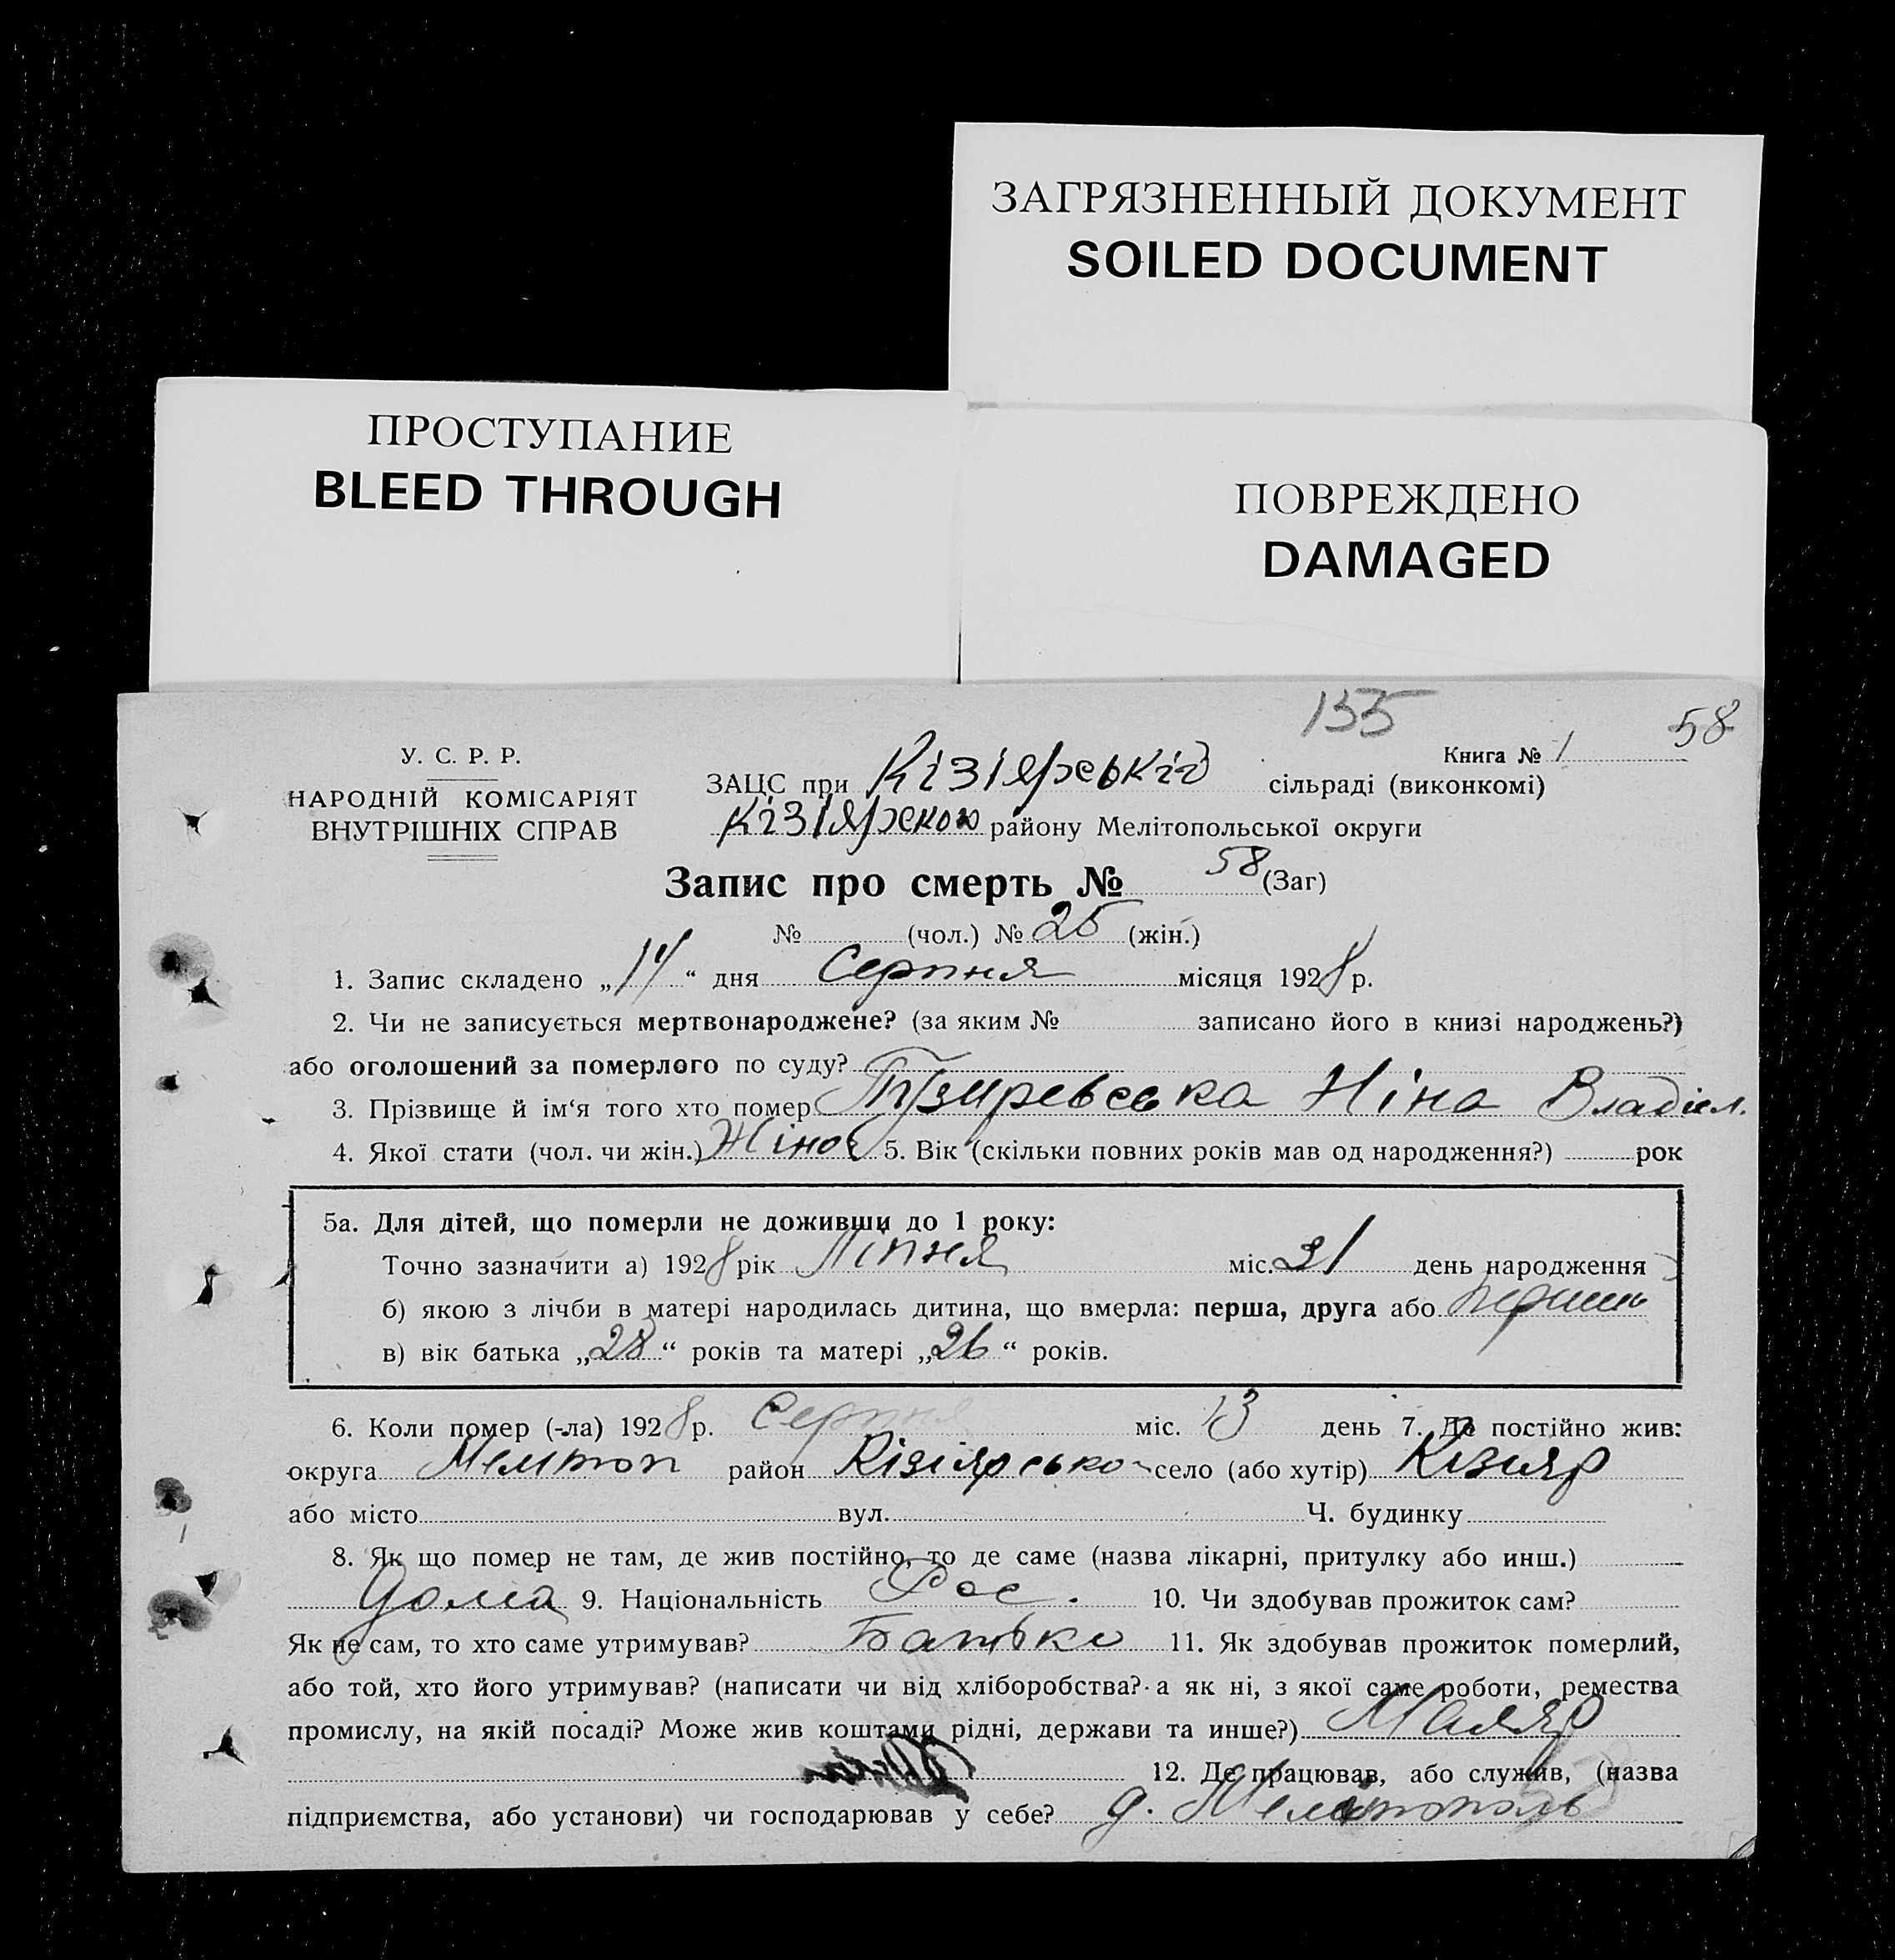 ЗАГРЯЗНЕННЫЙ ДОКУМЕНТ
SOILED DOCUMENT
ПРОСТУПАНИЕ
BLEED THROUGH
ПОВРЕЖДЕНО
DAMAGED
155
58
У. С. Р. Р.
НАРОДНІЙ КОМІСАРІЯТ
ВНУТРІШНІХ СПРАВ
Книга № 1
ЗАЦС при Кізіярській сільраді (виконкомі)
Кізіярского району Мелітопольської округи
Запис про смерть № 58 (Заг)
№ (чол.) № 25 (жін.)
1. Запис складено „14“ дня Серпня місяця 1928 р.
2. Чи не записується мертвонароджене? (за яким № записано його в книзі народжень?)
або оголошений за померлого по суду?
3. Прізвище й ім‘я того хто помер Ніна
4. Якої стати (чол. чи жін.) Жіноч 5. Вік (скільки повних років мав од народження?) рок
5а. Для дітей, що померли не доживши до 1 року:
Точно зазначити а) 1928 рік Ліпня міс. 31 день народження
б) якою з лічби в матері народилась дитина, що вмерла: перша, друга або
в) вік батька „28“ років та матері „26“ років.
6. Коли помер (-ла) 1928 р. Серпня міс. 13 день 7. Де постійно жив:
округа Мелитоп район Кізіярсько село (або хутір) Кізияр
або місто вул. Ч. будинку
8. Як що помер не там, де жив постійно, то де саме (назва лікарні, притулку або инш.)
Дома 9. Національність Рос. 10. Чи здобував прожиток сам?
Як не сам, то хто саме утримував? Батько 11. Як здобував прожиток померлий,
або той, хто його утримував? (написати чи від хліборобства? а як ні, з якої саме роботи, ремества
промислу, на якій посаді? Може жив коштами рідні, держави та инше?) Маляр
12. Де працював, або служив, (назва
підприємства, або установи) чи господарював у себе? Мелітополь